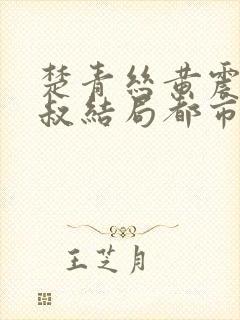 楚青丝黄震
叔结局都市
王芝月